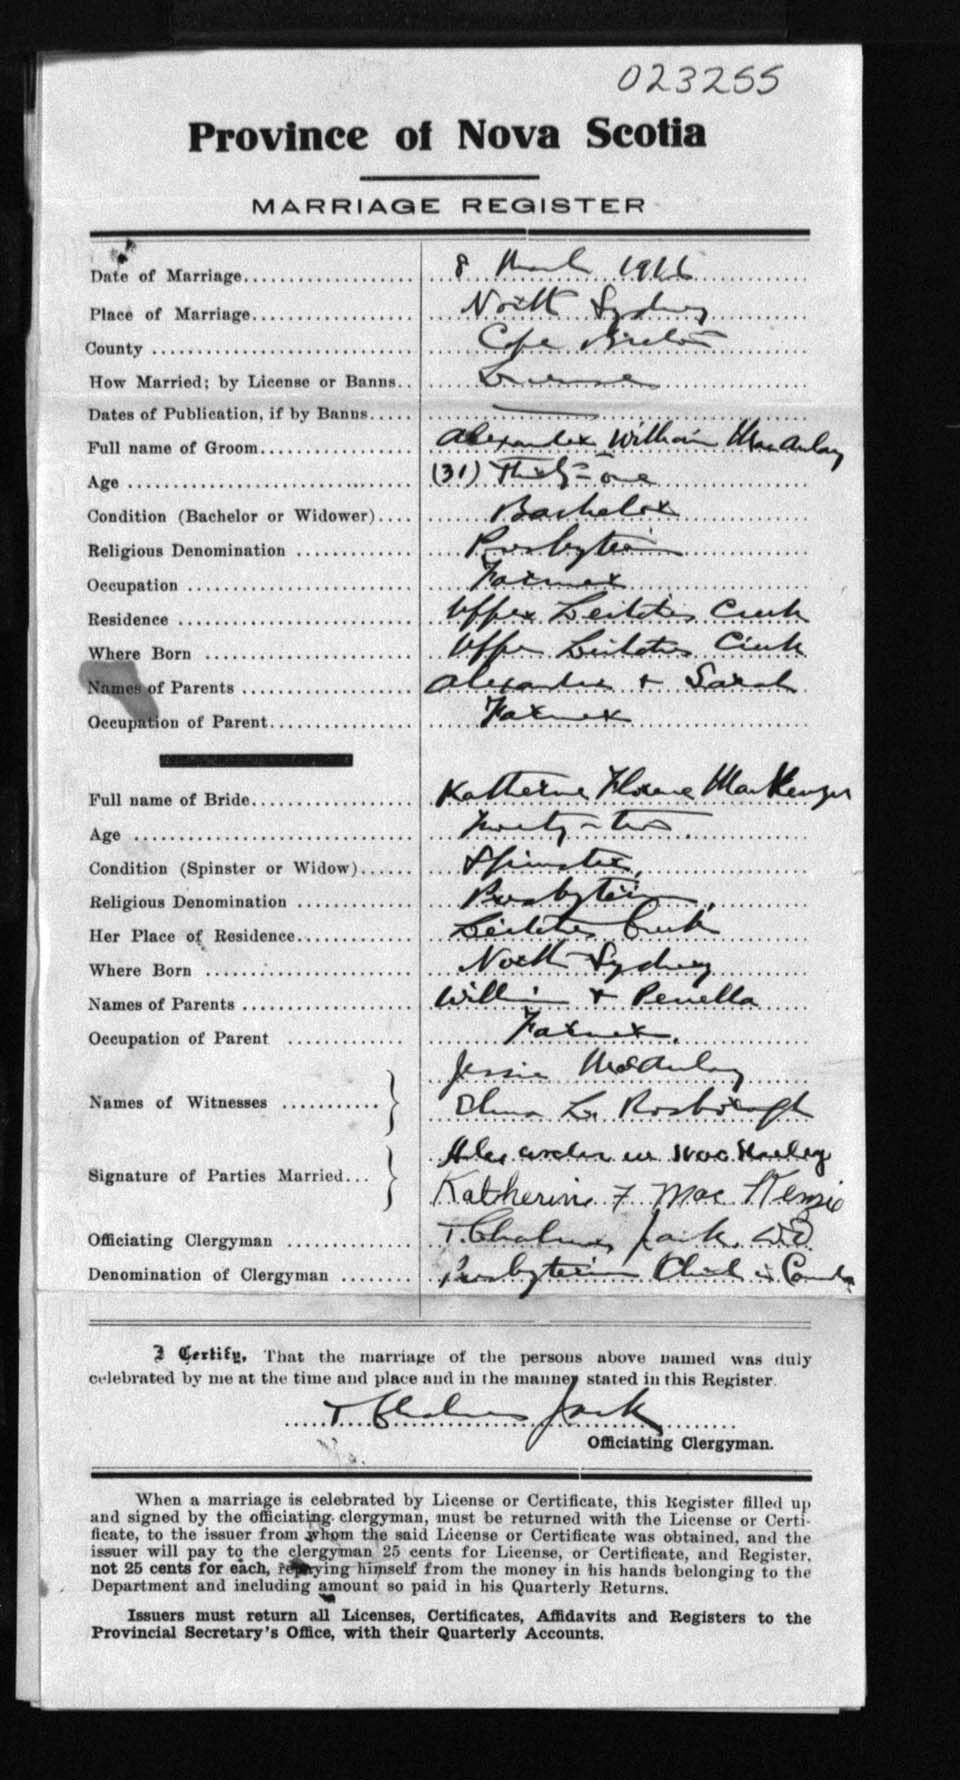 023255
Province of Nova Scotia
MARRIAGE REGISTER
Date of Marriage 8 March 1916
Place of Marriage North Sydney
County Cape Breton
How Married; by License or Banns License
Dates of Publication, if by Banns
Full name of Groom Alexander William MacAulay
Age (31) Thirty-one
Condition (Bachelor or Widower) Bachelor
Religious Denomination Presbyterian
Occupation Farmer
Residence Upper Leitches Creek
Where Born Upper Leitches Creek
Names of Parents Alexander + Sarah
Occupation of Parent Farmer
Full name of Bride Katherine Florence MacKenzie
Age Twenty-two
Condition (Spinster or Widow) Spinster
Religious Denomination Presbyterian
Her Place of Residence Leitches Creek
Where Born North Sydney
Names of Parents William + Penella
Occupation of Parent Farmer.
Names of Witnesses Jessie McAulay
L. Rosborough
Signature of Parties Married Alexander w MacAulay
Katherine F MacKenzie
Officiating Clergyman T. Chalmers Jack, DD
Denomination of Clergyman Presbyterian Church in Canada
I Certify, That the marriage of the persons above named was duly
celebrated by me at the time and place and in the manner stated in this Register.
T Chalmers Jack
Officiating Clergyman.
When a marriage is celebrated by License or Certificate, this Register filled up
and signed by the officiating clergyman, must be returned with the License or Certi-
ficate, to the issuer from whom the said License or Certificate was obtained, and the
issuer will pay to the clergyman 25 cents for License, or Certificate, and Register,
not 25 cents for each, repaying himself from the money in his hands belonging to the
Department and including amount so paid in his Quarterly Returns.
Issuers must return all Licenses, Certificates, Affidavits and Registers to the
Provincial Secretary's Office, with their Quarterly Accounts.